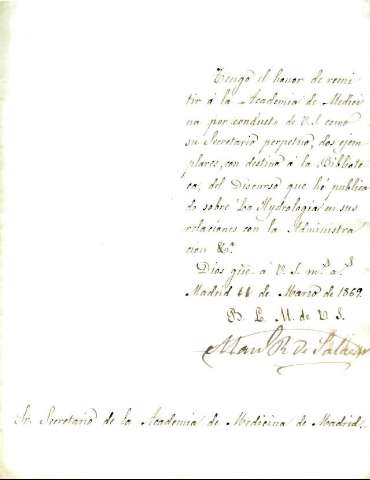 Tengo el honor de remi
tir á la Academia de Medici
na por conducto de V. S. como
su Secretario perpetuo, dos ejem
plares, con destino á la Bibliote
ca, del Discurso que hé publica
do sobre "La Hydrologia en sus
relaciones con la Administra
cion &ª.
Dios gũe. á V. S. m.ˢ a.ˢ
Madrid 11 de Marzo de 1869.
B. L. M. de V. S.
Man.ˡ R. de Salazar
Sr. Secretario de la Academia de Medicina de Madrid.